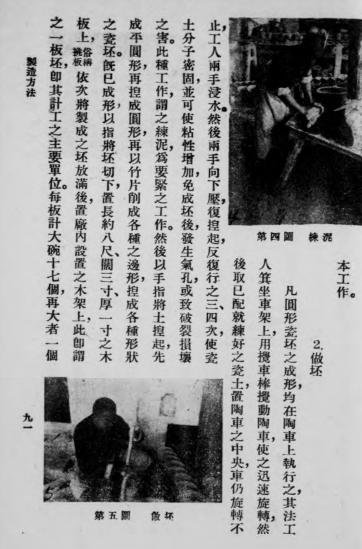 本工作。
2. 做坯
凡圓形瓷坯之成形，均在陶車上執行之，其法工
人箕坐車架上，用攪車棒攪動陶車，使之迅速旋轉，然
後取已配就練好之瓷土，置陶車之中央，車仍旋轉不
第四圖 練泥
止，工人兩手浸水，然後兩手向下壓復揑起，反復行之三四次，使瓷
土分子密固，並可使粘性增加，免成坯後發生氣孔，或致破裂損壞
之害，此種工作，謂之練泥，爲要緊之工作。然後以手指將土揑起，先
成平圓形，再揑成圓形，再以竹片削成各種之邊形，揑成各種形狀
之瓷坯。坯既已成形，以指將坯切下，置長約八尺、闊三寸、厚一寸之木
板上，俗稱挑板 依次將製成之坯放滿後，置廠內設置之木架上，此卽謂
之一板坯，卽其計工之主要單位。每板計大碗十七個，再大者一個
第五圖 做坯
製造方法
九一